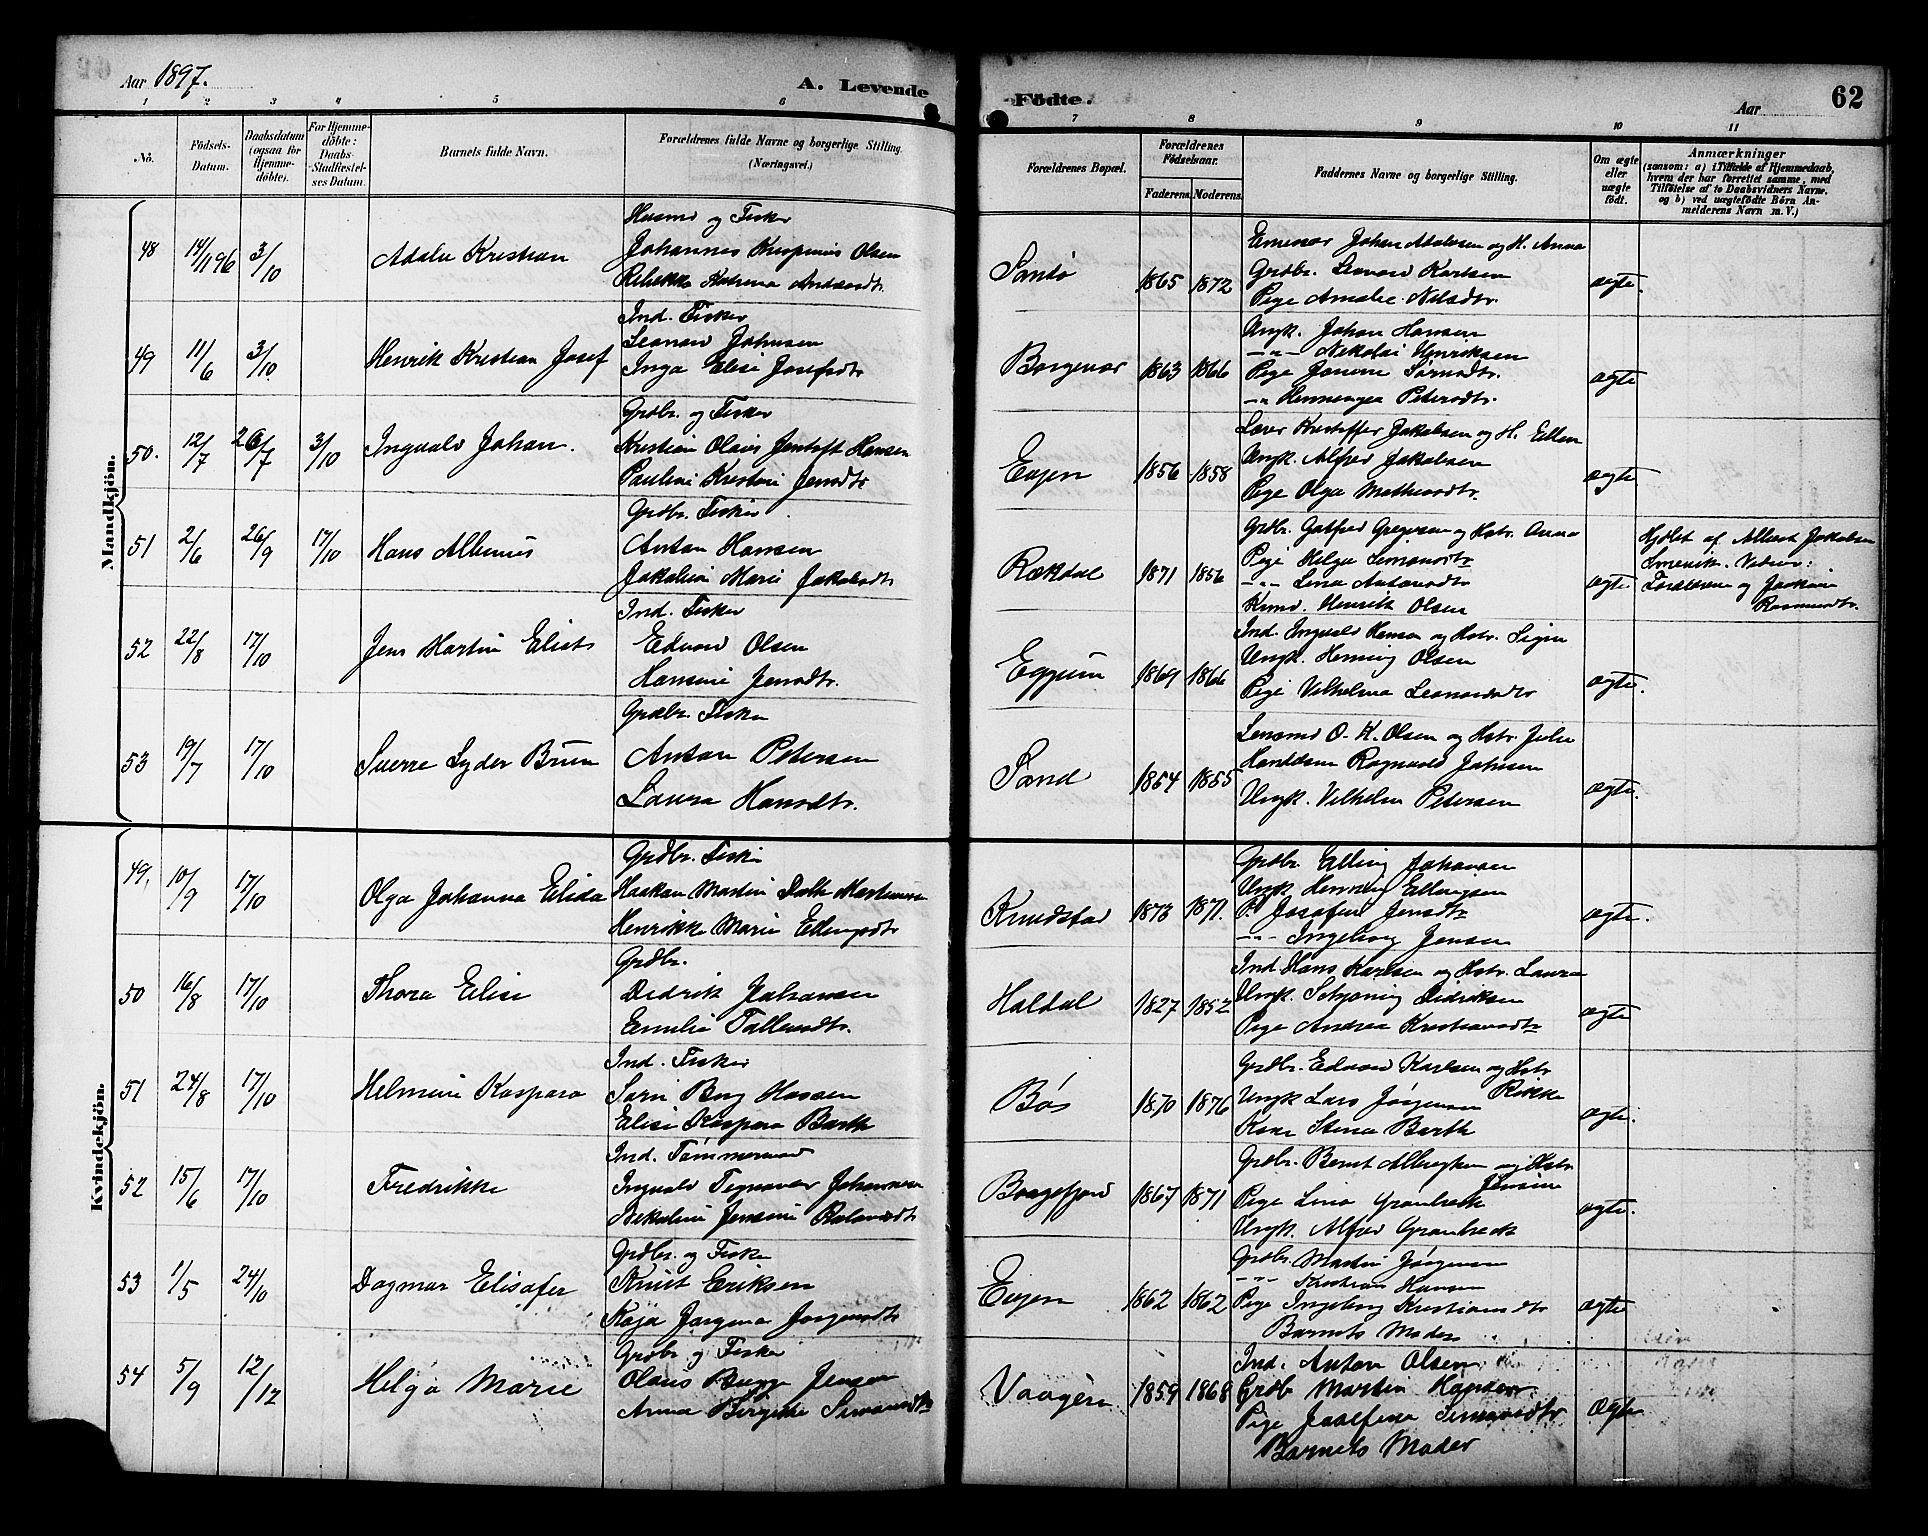 Aar 1897.
A. Levende
Fødte.
Aar
62
1 2 3 4 5 6 7 8 9 10 11
No.
Fødsels-
Datum.
Daabsdatum
(ogsaa for
Hjemme-
døbte).
For Hjemme-
døbte:
Daabs-
Stadfæstel-
ses Datum.
Barnets fulde Navn.
Forældrenes fulde Navne og borgerlige Stilling.
(Næringsvei.)
Forældrenes Bopæl.
Forældrenes
Fødselsaar.
Faderens. Moderens.
Faddernes Navne og borgerlige Stilling.
Om ægte
eller
uægte
født.
Anmærkninger
(saasom: a) i Tilfælde af Hjemmedaab,
hvem der har forrettet samme, med
Tilføielse af to Daabsvidners Navne.
og b) ved uægtefødte Börn An-
melderens Navn m. V.)
Mandkjön.
48 14/11 96 3/10
Adolw Kristian
Husmd og Fisker
Johannes Olsen
Sandø
1865 1872
Johan og H. Anna
Grdbr. Karlsen
Pige Amalie Nilsdtr.
ægte.
49 11/6 3/10
Henrik Kristian Josef
Ind. Fisker
Leonard Johnsen
Inga Elise Josefsdtr
Borgevær
1863 1866
Ungk. Johan Hansen
-"- Nikolai Henriksen
Pige
-"- Petersdtr.
ægte
50. 12/7 26/7 3/10
Ingvald Johan.
Grdbr. og Fisker
Kristian Olaus Jentoft Hansen
Pauline Kristine Jensdtr
Evjen
1856 1858
Lærer Kristoffer Jakobsen og H. Ellen
Ungk. Alfred Jakobsen
Pige Olga
ægte
51 2/6 26/9 17/10
Hans Albinus
Grdbr. Fisker
Anton Hansen
Jakobine Marie Jakobsdtr
Rækdal
1871 1856
Grdbr. Gotfred og Hstr. Anna
Pige Helga Simonsdtr
-"- Lina Antonsdtr
Henrik Olsen
ægte
Hjdbt af Albert Jakobsen
Smevik. Vidner:
Forældrene og
Rasmusdtr.
52 22/8 17/10
Jens Martin Elias
Ind. Fisker
Edvard Olsen
Hansine Jensdtr.
Eggum
1869 1866
Ind. Ingvald Hansen og Hstr.
Ungk. Henning Olsen
Pige Vilhelmine Leonardsdtr
ægte.
53 19/7 17/10
Sverre Lyder Bruun
Grdbr. Fisker
Anton Petersen
Laura Hansdtr.
Sand
1854 1855
Lensmd O. K. Olsen og Hstr. Julie
Ragnvald Johnsen
Ungk. Vilhelm Petersen
ægte.
Kvindekjön.
49. 10/9 17/10
Olga Johanna Elida
Grdbr. Fisker
Haakon Martin Martinussen
Henrikke Marie Ellingsdtr
Knudstad
1873 1871.
Grdbr. Elling Johansen
Ungk Henning Ellingsen
P. Josefine Jensdtr
-"- Ingeborg Jensen
ægte.
50 16/8 17/10
Thora Elise
Grdbr.
Didrik Johansen
Emilie Tollevsdtr.
Haldal
1827 1852
Ind. Hans Karlsen og Hstr. Laura
Ungk. Schjøning Didriksen
Pige Andrea Kristiansdtr
ægte
51 24/8 17/10
Helmine Kaspara
Ind. Fisker
Søren Berg Hassen
Elise Kaspara Barth
Bøs
1870 1876
Grdbr. Edvard Karlsen og Hstr
Rikke
Ungk Lars Jørgensen
Kone Stina Barth
ægte.
52 15/6 17/10
Fredrikke
Ind. Tømmermd
Ingvald Johannesen
Nikoline Jensine
Borgefjord
1867 1871
Grdbr. Bernt Albregtsen og Hstr
Jensine
Pige Lina Grønbæck
Ungk. Alfred Grønbæck
ægte.
53 1/5 24/10
Dagmar Elisafer
Grdbr. og Fisker
Knut Eriksen
Kaja Jørgine Jørgensdtr
Evjen
1862 1862
Grdbr. Martin Jørgensen
-"- Kristian Hansen
Pige Ingeborg Kristiansdtr
Barnets Moder
ægte
54 5/9 12/12
Helga Marie
Grdbr. og Fisker
Olaus Bugge Jensen
Anna Birgitte Simonsdtr
Vaagen
1859 1868
Ind. Anton Olsen
Grdb Martin Hansen
Pige Josefine Simonsdtr
Barnets Moder
ægte